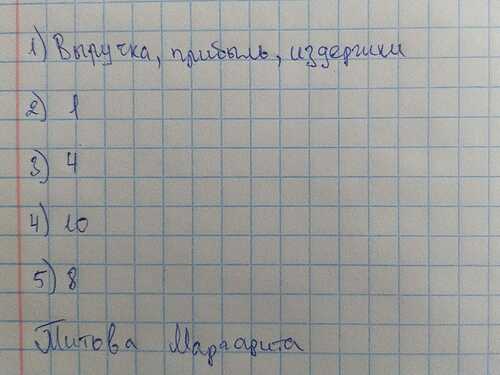 1) Выручка, прибыль, издержки
2) 1
3) 4
4) 10
5) 8
Титова Маргарита